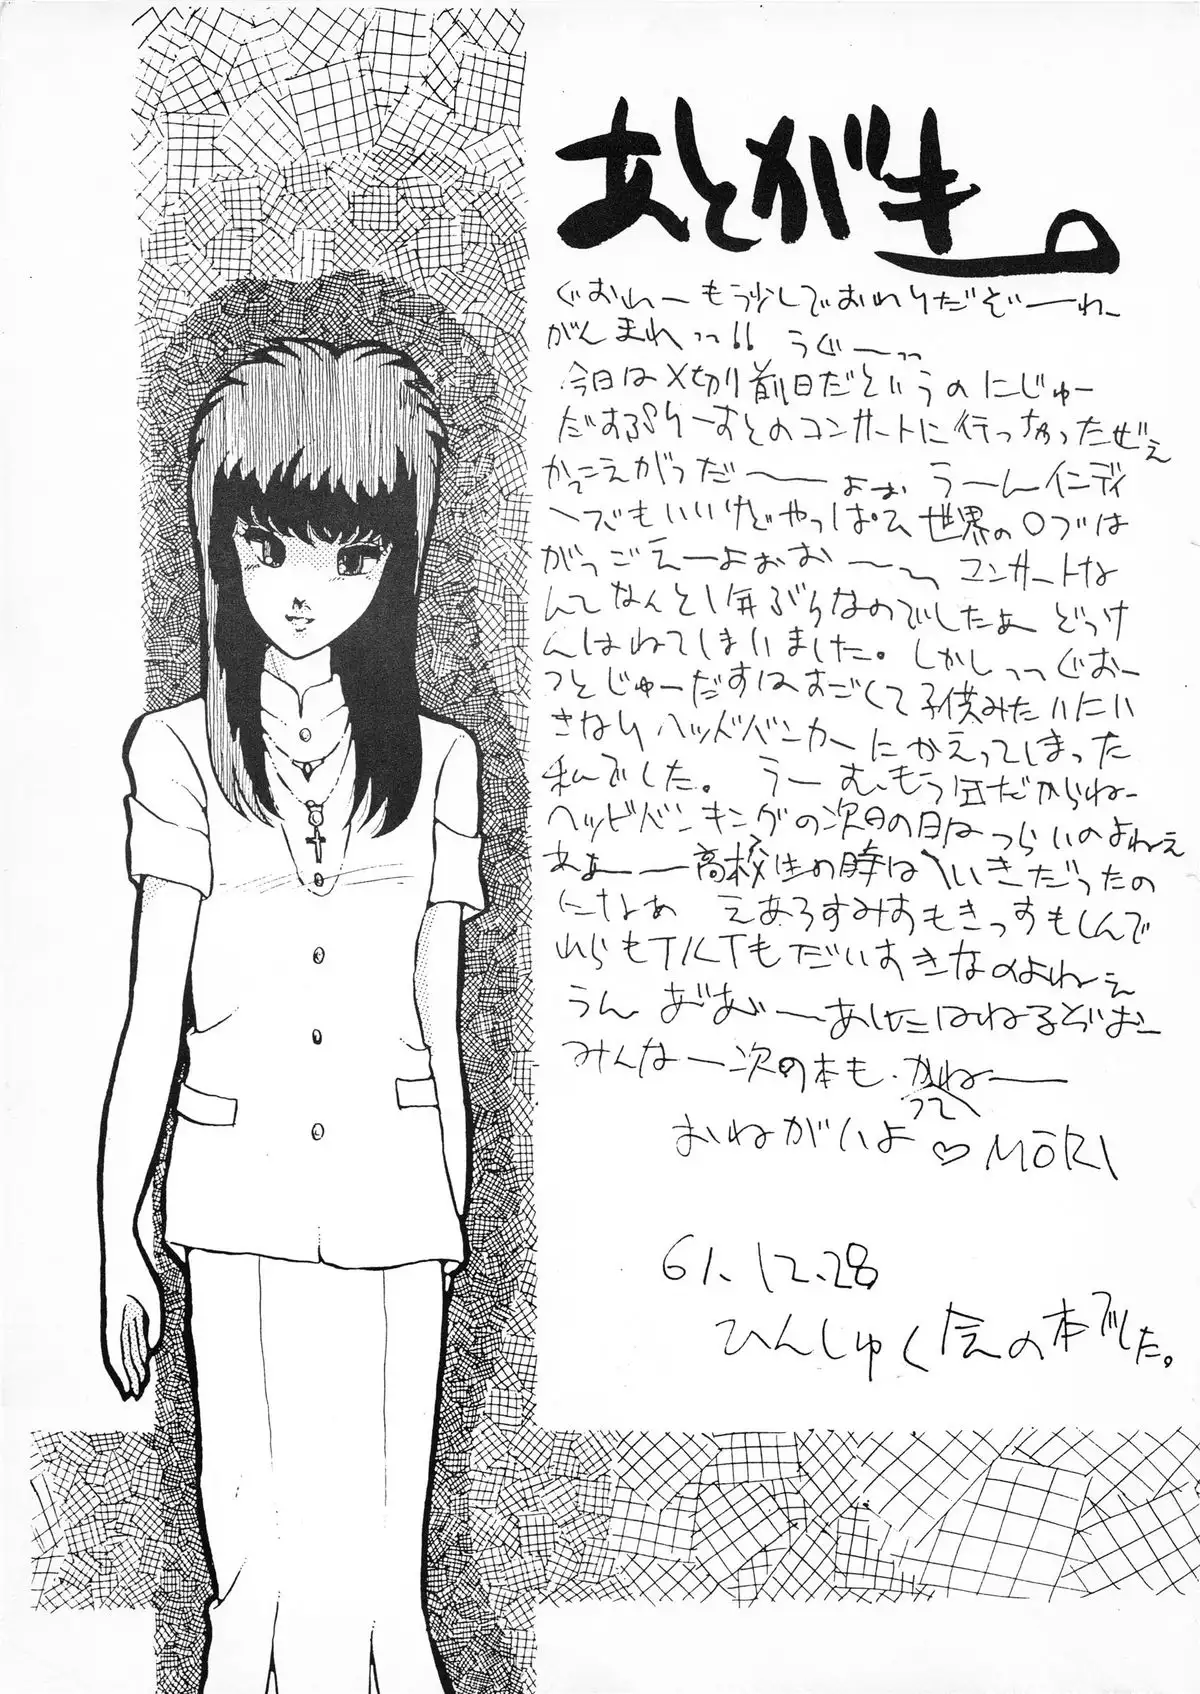 あとがき。
ぐおわーもう少しでおわりだぞーーわー
がんまれっっ!! うぐーーっっ
今日は〆切り前日だというのにじゅー
だすぷりーすとのコンサートに行っちゃったぜぇ
かっこえがっだ〜〜ょぉぉ うーんインディ
ーでもいいけどやっぱり世界のロブは
がっごえーーよぉぉお〜〜 コンサートな
んてなんと1年ぶりなのでしたぁー どっけ
んはねてしまいました。しかしっっぐおー
っとじゅーだすはすごくて子供みたいにい
きなりヘッドバンカーにかえってしまった
私でした。 うーむ、もう
だからねー
ヘッドバンキングの次の日の日はつらいのよねぇ
あぁーー高校生の時はへいきだったの
になぁ えあろすみすもきっすもしんで
れらもT/LTもだいすきなのよねぇ
うん おおーーあしたはねるぞぉー
みんなー次の本も、かねーー
って
おねがいよ♡MORI
61.12.28
ひんしゅく会の本でした。